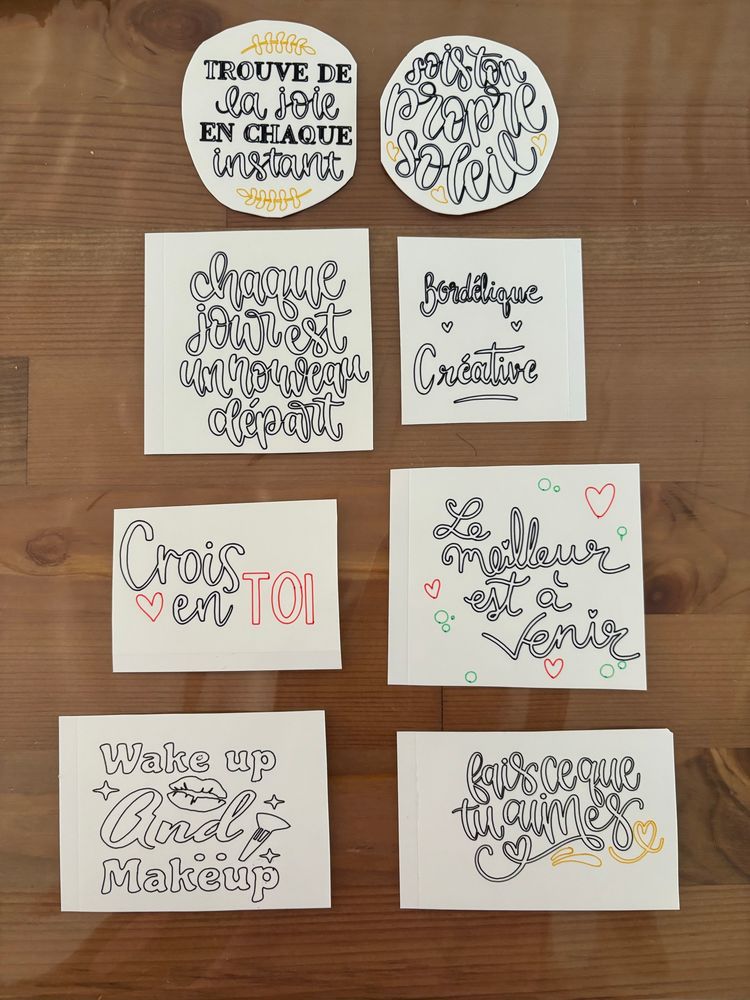 TROUVE DE
la joie
EN CHAQUE
instant
sois ton
propre
soleil
chaque
jour est
un nouveau
départ
Bordélique
Créative
Crois
en TOI
Le
meilleur
est à
venir
Wake up
And
Makëup
fais ce que
tu aimes